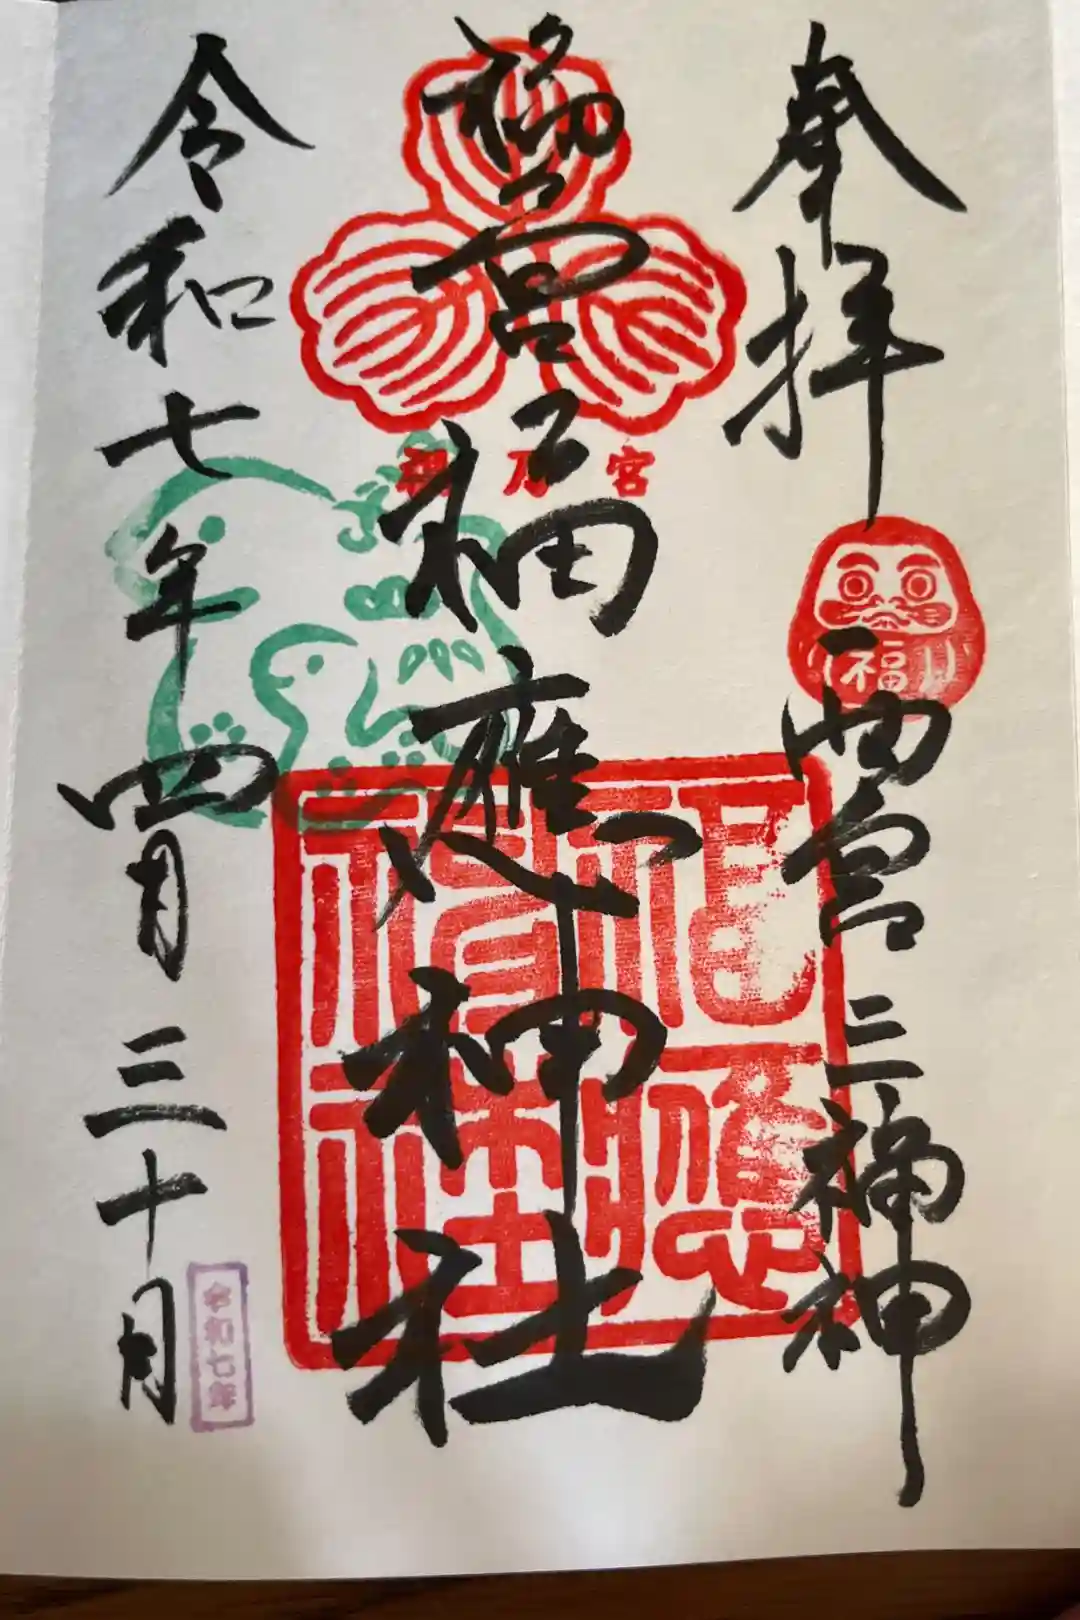 奉拝
福
西宮三福神
福乃宮
福乃宮
福應神社
福應神社
令和七年四月三十日
令和七年